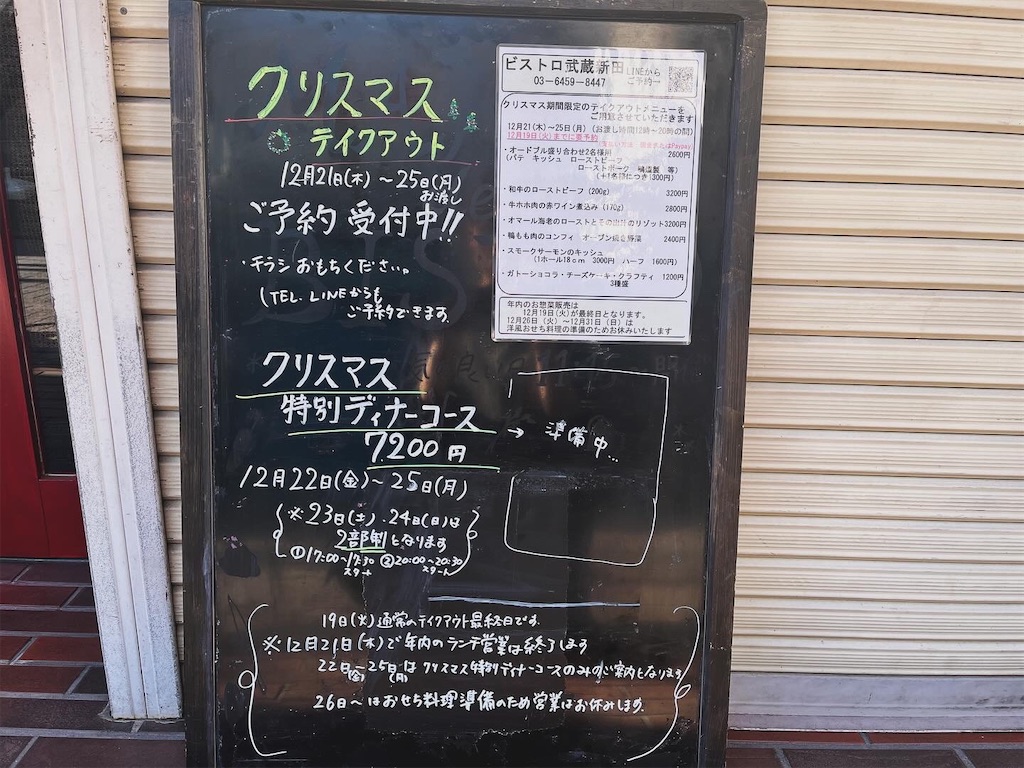 クリスマス
テイクアウト
12月21日(木)～25日(月)
お渡し
ご予約 受付中!!
・チラシおもちください。
(TEL. LINEからも
ご予約できます。
ビストロ武蔵新田
LINEから
ご予約→
03-6459-8447
クリスマス期間限定のテイクアウトメニューを
ご用意させていただきます
12月21(木)～25日(月)(お渡し時間12時～20時の間)
12月19日(火)までに要予約
・オードブル盛り合わせ2名様用 2600円
(パテ キッシュ ローストビーフ
ローストポーク 燻製 等)
(+1名様につき1300円)
・和牛のローストビーフ(200g) 3200円
・牛ホホ肉の赤ワイン煮込み(170g) 2800円
・オマール海老のローストとその出汁のリゾット3200円
・鴨もも肉のコンフィ オーブン焼き野菜 2400円
・スモークサーモンのキッシュ
(1ホール18cm 3000円 ハーフ 1600円)
・ガトーショコラ・チーズケーキ・クラフティ 1200円
3種盛
年内のお惣菜販売は
12月19日(火)が最終日となります。
12月26日(火)～12月31日(日)は
洋風おせち料理の準備のためお休みいたします
クリスマス
特別ディナーコース
7,200円
→ 準備中...
12月22日(金)～25日(月)
※23日(土).24日(日)は
2部制となります
①17:00～17:30 ②20:00～20:30
スタート スタート
19日(火)通常のテイクアウト最終日です。
※12月21日(木)で年内のランチ営業は終了します
22日(金)～25日(月)はクリスマス特別ディナーコースのみのご案内となります
26日～はおせち料理準備のため営業はお休みします。